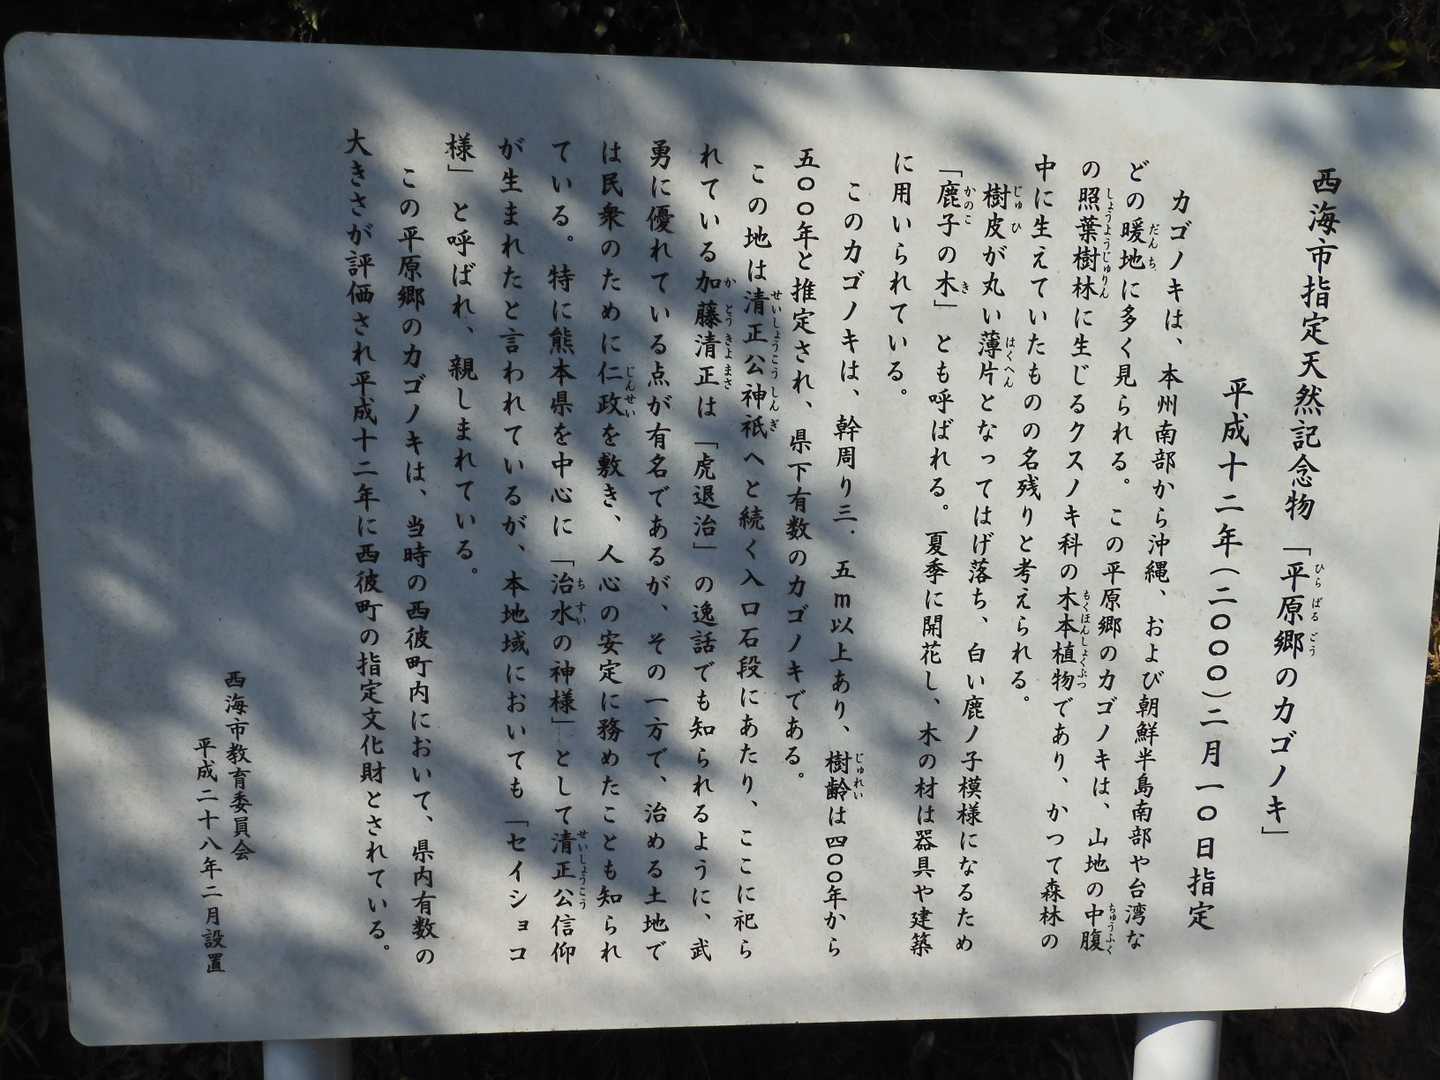 西海市指定天然記念物「平原郷のカゴノキ」
平成十二年(二〇〇〇)二月一〇日指定
カゴノキは、本州南部から沖縄、および朝鮮半島南部や台湾な
どの暖地に多く見られる。この平原郷のカゴノキは、山地の中腹
の照葉樹林に生じるクスノキ科の木本植物であり、かつて森林の
中に生えていたものの名残りと考えられる。
樹皮が丸い薄片となってはげ落ち、白い鹿ノ子模様になるため
「鹿子の木」とも呼ばれる。夏季に開花し、木の材は器具や建築
に用いられている。
このカゴノキは、幹周り三．五ｍ以上あり、樹齢は四〇〇年から
五〇〇年と推定され、県下有数のカゴノキである。
この地は清正公神祇へと続く入口石段にあたり、ここに祀ら
れている加藤清正は「虎退治」の逸話でも知られるように、武
勇に優れている点が有名であるが、その一方で、治める土地で
は民衆のために仁政を敷き、人心の安定に務めたことも知られ
ている。特に熊本県を中心に「治水の神様」として清正公信仰
が生まれたと言われているが、本地域においても「セイショコ
様」と呼ばれ、親しまれている。
この平原郷のカゴノキは、当時の西彼町内において、県内有数の
大きさが評価され平成十二年に西彼町の指定文化財とされている。
西海市教育委員会
平成二十八年二月設置